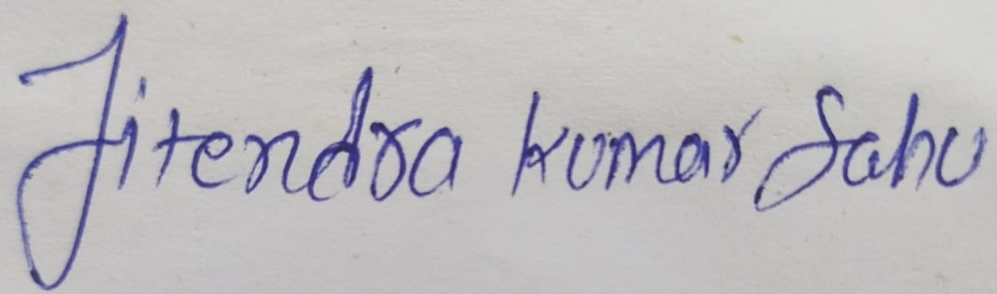 Jitendra kumar Sahu